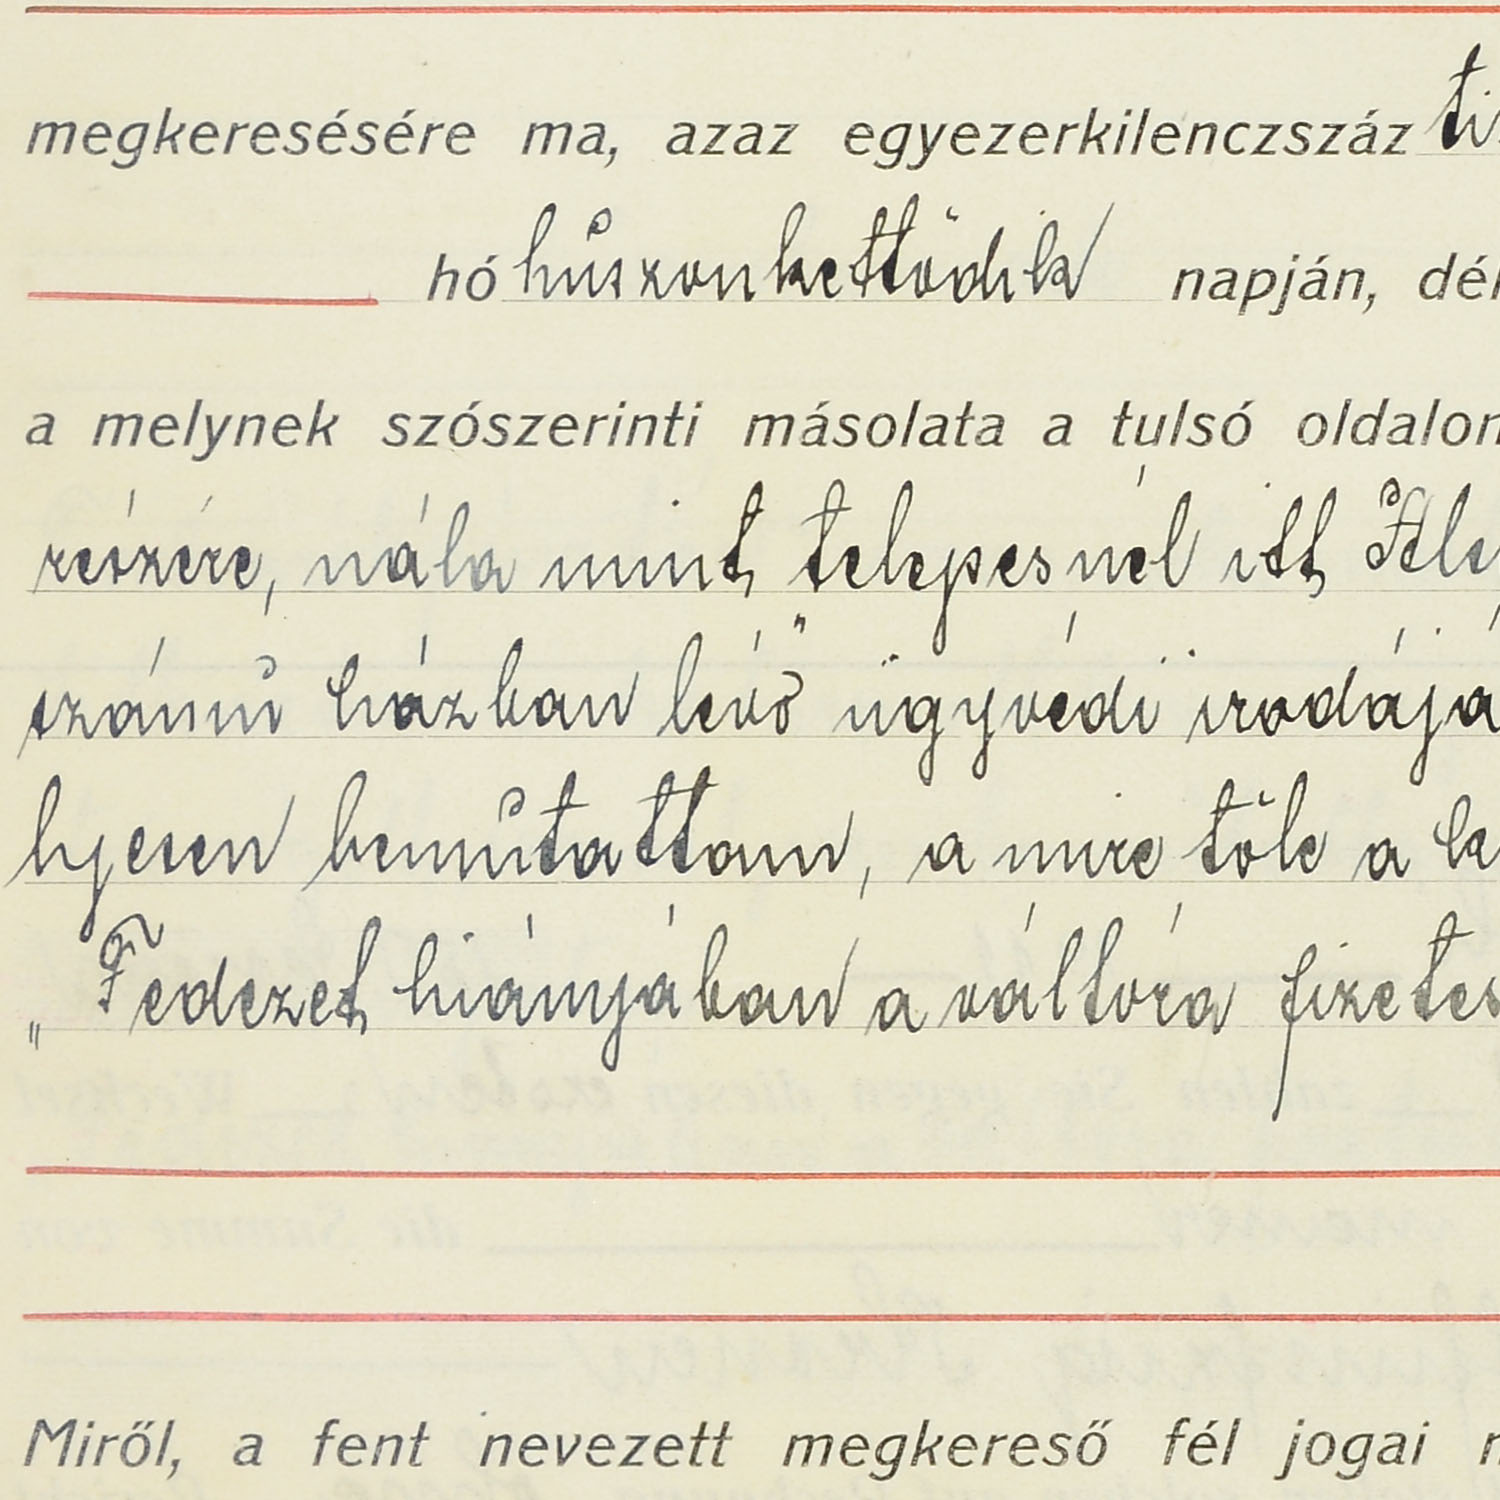 megkeresésére ma, azaz egyezerkilenczszáz
hó huszonkettődik napján, dél
a melynek szószerinti másolata a tulsó oldalon
részére, nála mint telepesnél itt
számu házban lévő ügyvédi irodájá
lyesen bemutattam, a mire tőle a
„Fedezet hiányjában a váltóra fizetes
Miről, a fent nevezett megkereső fél jogai